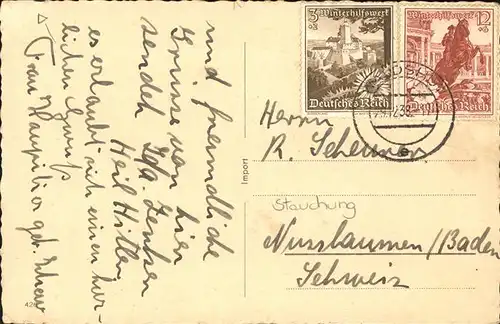 und freundliche
Grüsse von hier
sendet Gefr. Jensen
Heil Hitler
es erlaubt sich einen herz-
lichen Gruß
Frau
geb.
Import
3
Winterhilfswerk
Deutsches Reich
12
Winterhilfswerk
Deutsches Reich
Herrn
R. Scheuner
Stauchung
Nussbaumen/Baden
Schweiz